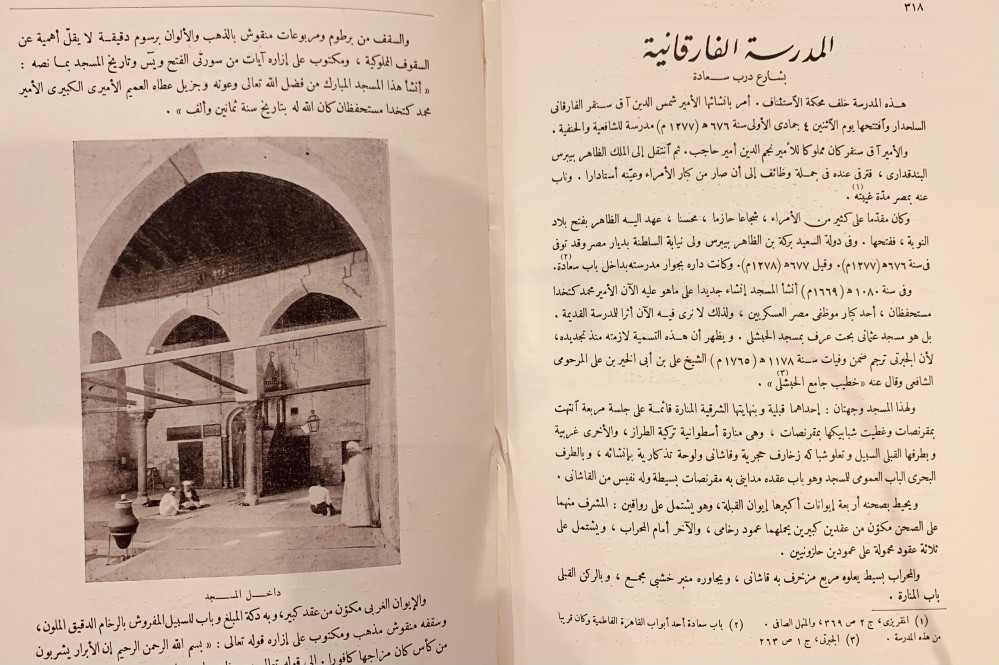 ٣١٨
المدرسة الفارقانية
بشارع درب سعادة
هذه المدرسة خلف محكمة الاستئناف . أمر بانشائها الأمير شمس الدين آق سنقر الفارقانى
السلحدار وآفتتحها يوم الآثنين ٤ جمادى الأولى سنة ٦٧٦ ه (١٢٧٧ م) مدرسة للشافعية والحنفية .
والأمير آق سنقر كان مملوكا للأمير نجم الدين أمير حاجب. ثم آنتقل إلى الملك الظاهر بيبرس
البندقدارى ، فترقى عنده فى جملة وظائف إلى أن صار من كبار الأمراء وعيّنه أستادارا . وناب
عنه بمصر مدّة غيبته(١) .
وكان مقدّما على كثير من الأمراء ، شجاعا حازما ، محسنا ، عهد اليه الظاهر بفتح بلاد
النوبة ، ففتحها . وفى دولة السعيد بركة بن الظاهر بيبرس ولى نيابة السلطنة بديار مصر وقد توفى
فى سنة ٦٧٦ ه (١٢٧٧م). وقيل ٦٧٧ ه (١٢٧٨م). وكانت داره بجوار مدرسته بداخل باب سعادة(٢).
وفى سنة ١٠٨٠ ه (١٦٦٩م) أنشأ المسجد إنشاء جديدا على ماهو عليه الآن الأمير محمد كتخدا
مستحفظان ، أحد كبار موظفى مصر العسكريين ، ولذلك لا نرى فيه الآن أثرا للدرسة القديمة .
بل هو مسجد عثمانى بحت عرف بمسجد الحبشلى . ويظهر أن هذه التسمية لازمته منذ تجديده ،
لأن الجبرتى ترجم ضمن وفيات سنة ١١٧٨ ه (١٧٦٥ م) الشيخ على بن أبى الخير بن على المرحومى
الشافعى وقال عنه «خطيب جامع الحبشلى(٣)» .
ولهذا المسجد وجهتان : إحداهما قبلية وبنهايتها الشرقية المنارة قائمة على جلسة مربعة آنتهت
بمقرنصات وغطيت شبابيكها بمقرنصات ، وهى منارة أسطوانية تركية الطراز ، والأخرى غربية
وبطرفها القبلى السبيل وتعلو شباكه زخارف حجرية وقاشانى ولوحة تذكارية بإنشائه ، وبالطرف
البحرى الباب العمومى للسجد وهو باب عقده مداينى به مقرنصات بسيطة وله نفيس من القاشانى .
ويحيط بصحنه أربعة إيوانات أكبرها إيوان القبلة، وهو يشتمل على رواقين : المشرف منهما
على الصحن مكوّن من عقدين كبيرين يحملهما عمود رخامى ، والآخر أمام المحراب ، ويشتمل على
ثلاثة عقود محمولة على عمودين حلزونيين .
والمحراب بسيط يعلوه مربع مزخرف به قاشانى ، ويجاوره منبر خشبى مجمع ، وبالركن القبلى
باب المنارة .
(١) المقريزى، ج ٢ ص ٣٦٩ ، والمنهل الصافى . (٢) باب سعادة أحد أبواب القاهرة الفاطمية وكان قريبا
من هذه المدرسة . (٣) الجبرتى، ج ١ ص ٢٦٣
والسقف من برطوم ومربوعات منقوش بالذهب والألوان برسوم دقيقة لا يقلّ أهمية عن
السقوف المملوكية ، ومكتوب على إزاره آيات من سورتى الفتح ويس وتاريخ المسجد بما نصه :
« أنشأ هذا المسجد المبارك من فضل الله تعالى وعونه وجزيل عطاه العميم الأميرى الكبيرى الأمير
محمد كتخدا مستحفظان كان الله له بتاريخ سنة ثمانين وألف » .
داخل المسجد
والإيوان الغربى مكوّن من عقد كبير، وبه دكة المبلغ و باب للسبيل المفروش بالرخام الدقيق الملون،
وسقفه منقوش مذهب ومكتوب على إزاره قوله تعالى : « بسم الله الرحمن الرحيم إن الأبرار يشربون
من كأس كان مزاجها كافورا . إلى قوله تعالى